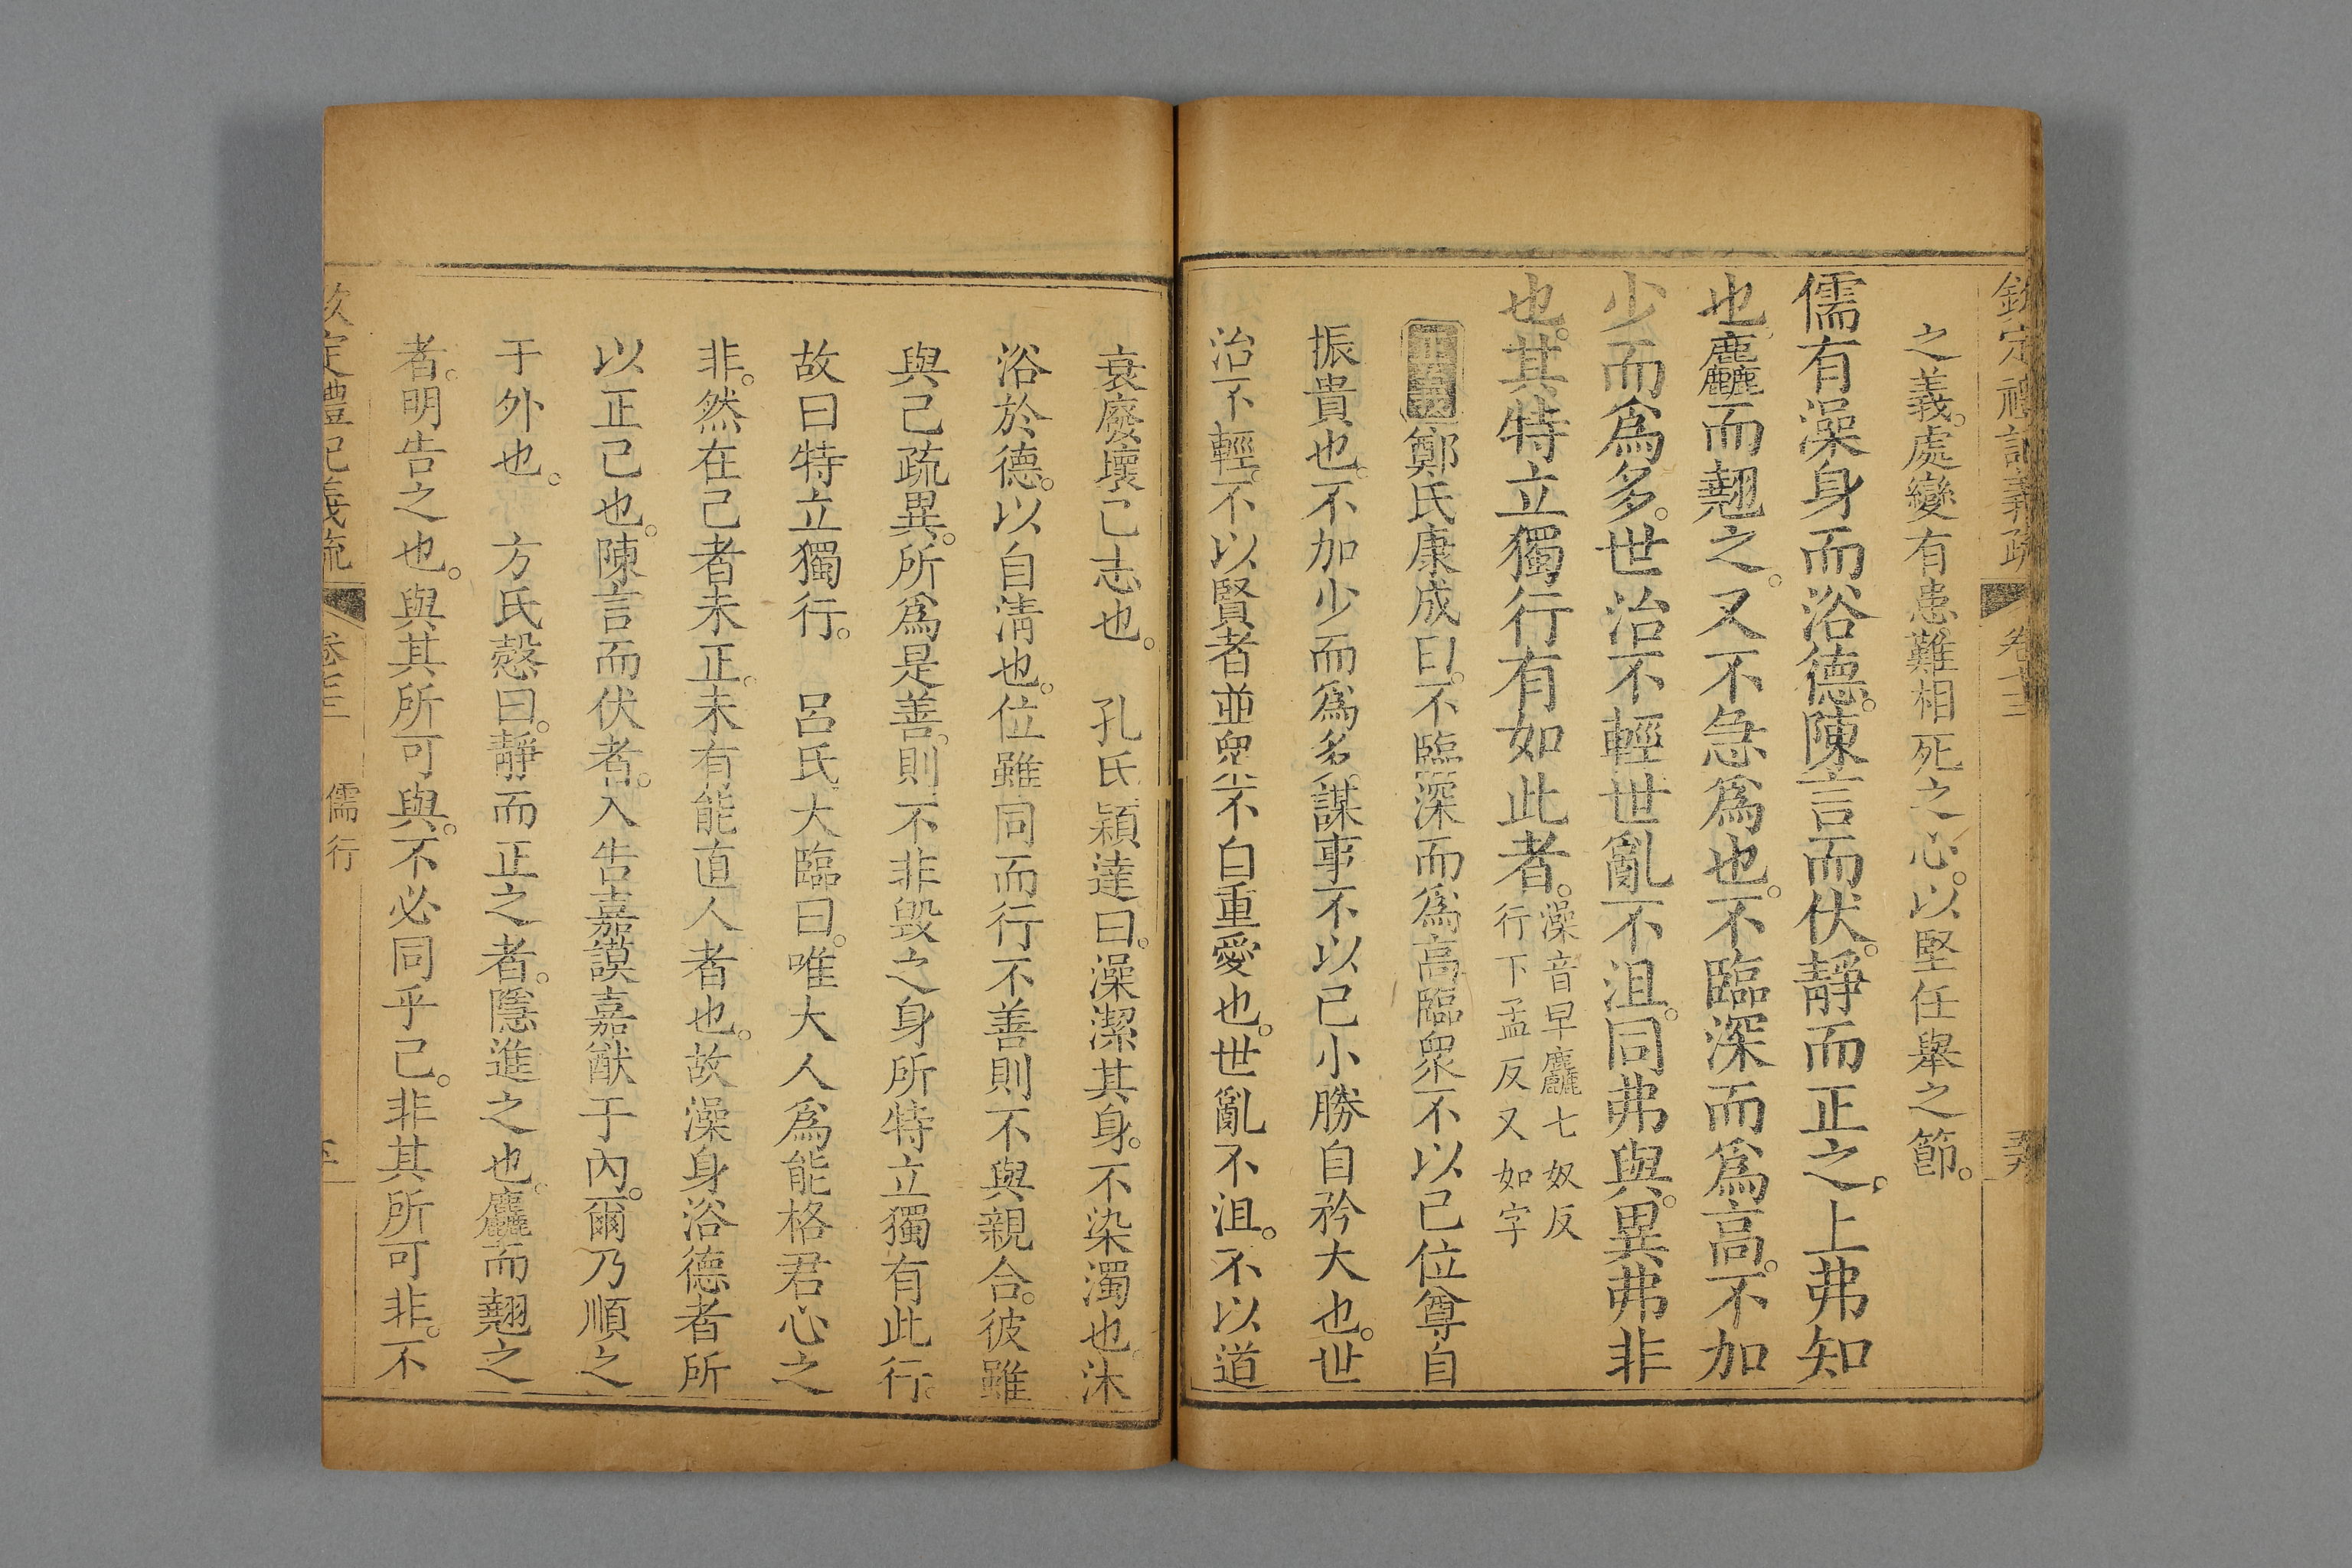 欽定禮記義疏 卷七十三
之義。處變有患難相死之心。以堅任舉之節。
儒有澡身而浴德。陳言而伏。靜而正之。上弗知
也。麤而翹之。又不急爲也。不臨深而爲高。不加
少而爲多。世治不輕。世亂不沮。同弗與。異弗非
也。其特立獨行有如此者。澡音早麤七奴反
行下孟反又如字
正義鄭氏康成曰。不臨深而爲高臨衆不以己位尊自
振貴也。不加少而爲多。謀事不以己小勝自矜大也。世
治不輕。不以賢者並衆不自重愛也。世亂不沮。不以道
衰廢壞己志也。 孔氏穎達曰。澡潔其身。不染濁也。沐
浴於德。以自淸也。位雖同而行不善則不與親合。彼雖
與己疏異。所爲是善。則不非毀之身所特立獨有此行。
故曰特立獨行。 呂氏大臨曰。唯大人爲能格君心之
非。然在己者未正。未有能直人者也。故澡身浴德者所
以正己也。陳言而伏者。入告嘉謨嘉猷于內。爾乃順之
于外也。 方氏慤曰。靜而正之者。隱進之也。麤而翹之
者。明告之也。與其所可與。不必同乎己。非其所可非。不
欽定禮記義疏 儒行